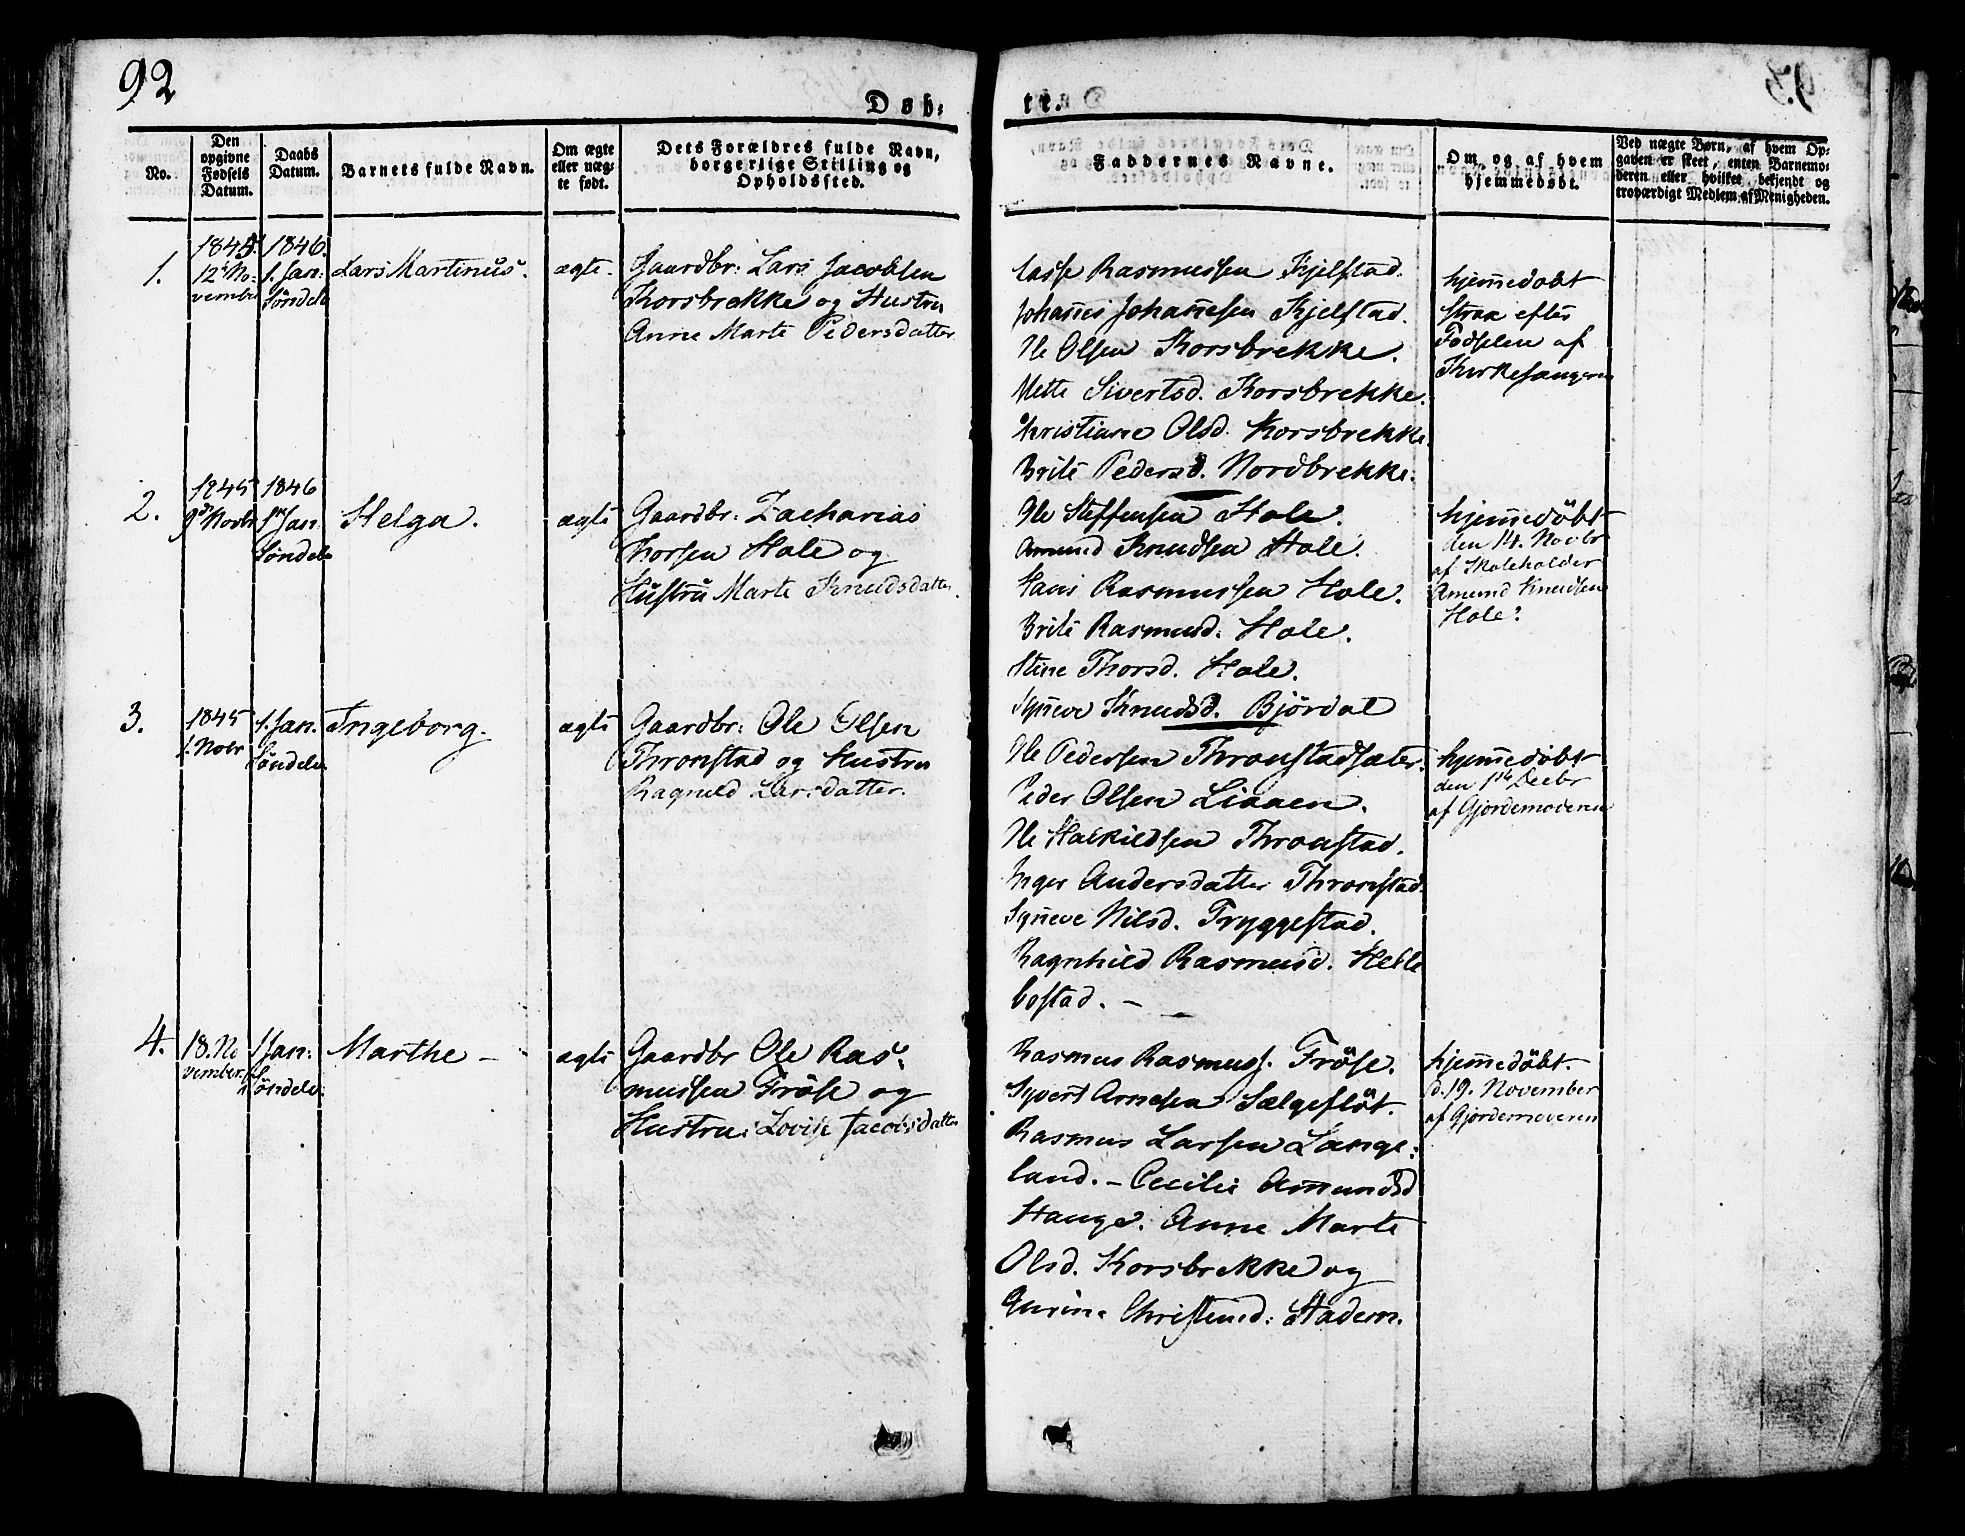 92
Døb:
te.
No.
Den opgivne Fødsels Datum.
Daabs Datum.
Barnets fulde Navn.
Om ægte eller uæg- te født.
Dets Forældres fulde Navn, borgerlige Stilling og Opholdssted.
Faddernes Navne.
Om og af hvem hjemmedøbt.
Ved uægte Børn, af hvem Op- gaven er skeet, enten Barnemo- deren eller hvilket bekjendt og troværdigt Medlem af Menigheden.
1.
1845
12te No-
vember
1846.
1. Jan:
Søndele
Lars Martinus.
ægte.
Gaardbr: Lars Jacobsen
Korsbrekke og Hustru
Anne Marte Pedersdatter
Lasse Rasmussen Kjelstad.
Johannes Johannesen Kjelstad.
Ole Olsen Korsbrekke.
Mette Sivertsd. Korsbrekke.
Christiane Olsd. Korsbrekke
Brite Pedersd. Nordbrekke.
hjemmedøbt
strax efter
Fødselen af
Kirkesangeren
2.
1845
9de Novbr
1846
1ste Jan.
Søndele
Helga.
ægte
Gaardbr: Zacharias
Thorsen Hole og
Hustru Marte Knudsdatter.
Ole Steffensen Hole.
Amund Knudsen Hole.
Hans Rasmussen Hole.
Brite Rasmusd. Hole.
Stine Thorsd. Hole.
Synneve Knudsd. Bjørdal
hjemmedøbt
den 14. Novbr
af Skoleholder
Amund Knudsen
Hole.
3.
1845
1. Nobr
1. Jan.
Søndele
Ingeborg.
ægte
Gaardbr: Ole Olsen
Thronstad og Hustru
Ragnild Larsdatter.
Ole Pedersen Thronstadsæter.
Peder Olsen Lianen.
Ole Halkildsen Thronstad.
Inger Andersdatter Thronstad.
Synneve Nilsd. Tryggestad.
Ragnhild Rasmusd. Helle
bostad. —
hjemmedøbt
den 1ste Decbr
af Gjordemoderen
4.
18. No
vember.
1 Jan:
Søndele.
Marthe —
ægte
Gaardbr Ole Ras-
mussen Frøse og
Hustru: Lovise Jacobsdatter
Rasmus Rasmuss. Frøse.
Syvert Arnesen Sælgefløt.
Rasmus Larsen Lange:
land. — Cecilie Amundsd
Hauge. Anne Marte
Olsd. Korsbrekke og
Gurine Christend: Stadem.
hjemmedøbt.
d. 19. November
af Gjordemoderen